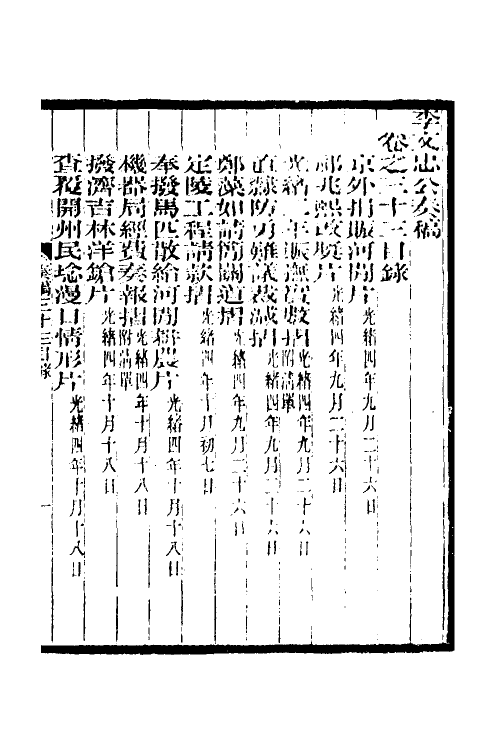 李文忠公奏稿
卷之三十三目錄
京外捐賑河間片 光緒四年九月二十六日
兆熙改獎片 光緒四年九月二十六日
光緒 年賑撫 數摺 附清單 光緒四年九月二十六日
直隸防勇難議裁減摺 光緒四年九月二十六日
鄭藻如請簡關道摺 光緒四年九月二十六日
定陵工程請款摺 光緒四年十月初七日
奉撥馬匹散給河間耕農片 光緒四年十月十八日
機器局經費奏報摺 附清單 光緒四年十月十八日
撥濟吉林洋鎗片 光緒四年十月十八日
查覆開州民埝漫口情形片 光緒四年十月十八日
奏稿三十三目錄 一